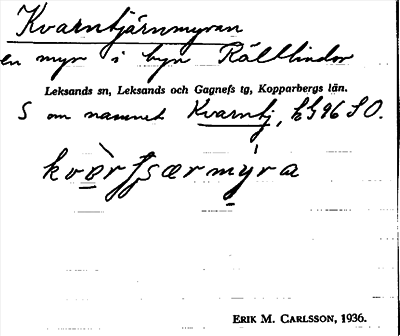 Kvarntjärnmyran
en myr i byn Rältlindor
Leksands sn, Leksands och Gagnefs tg, Kopparbergs län.
S om namnet Kvarntj, 96 SO.
ERIK M. CARLSSON, 1936.